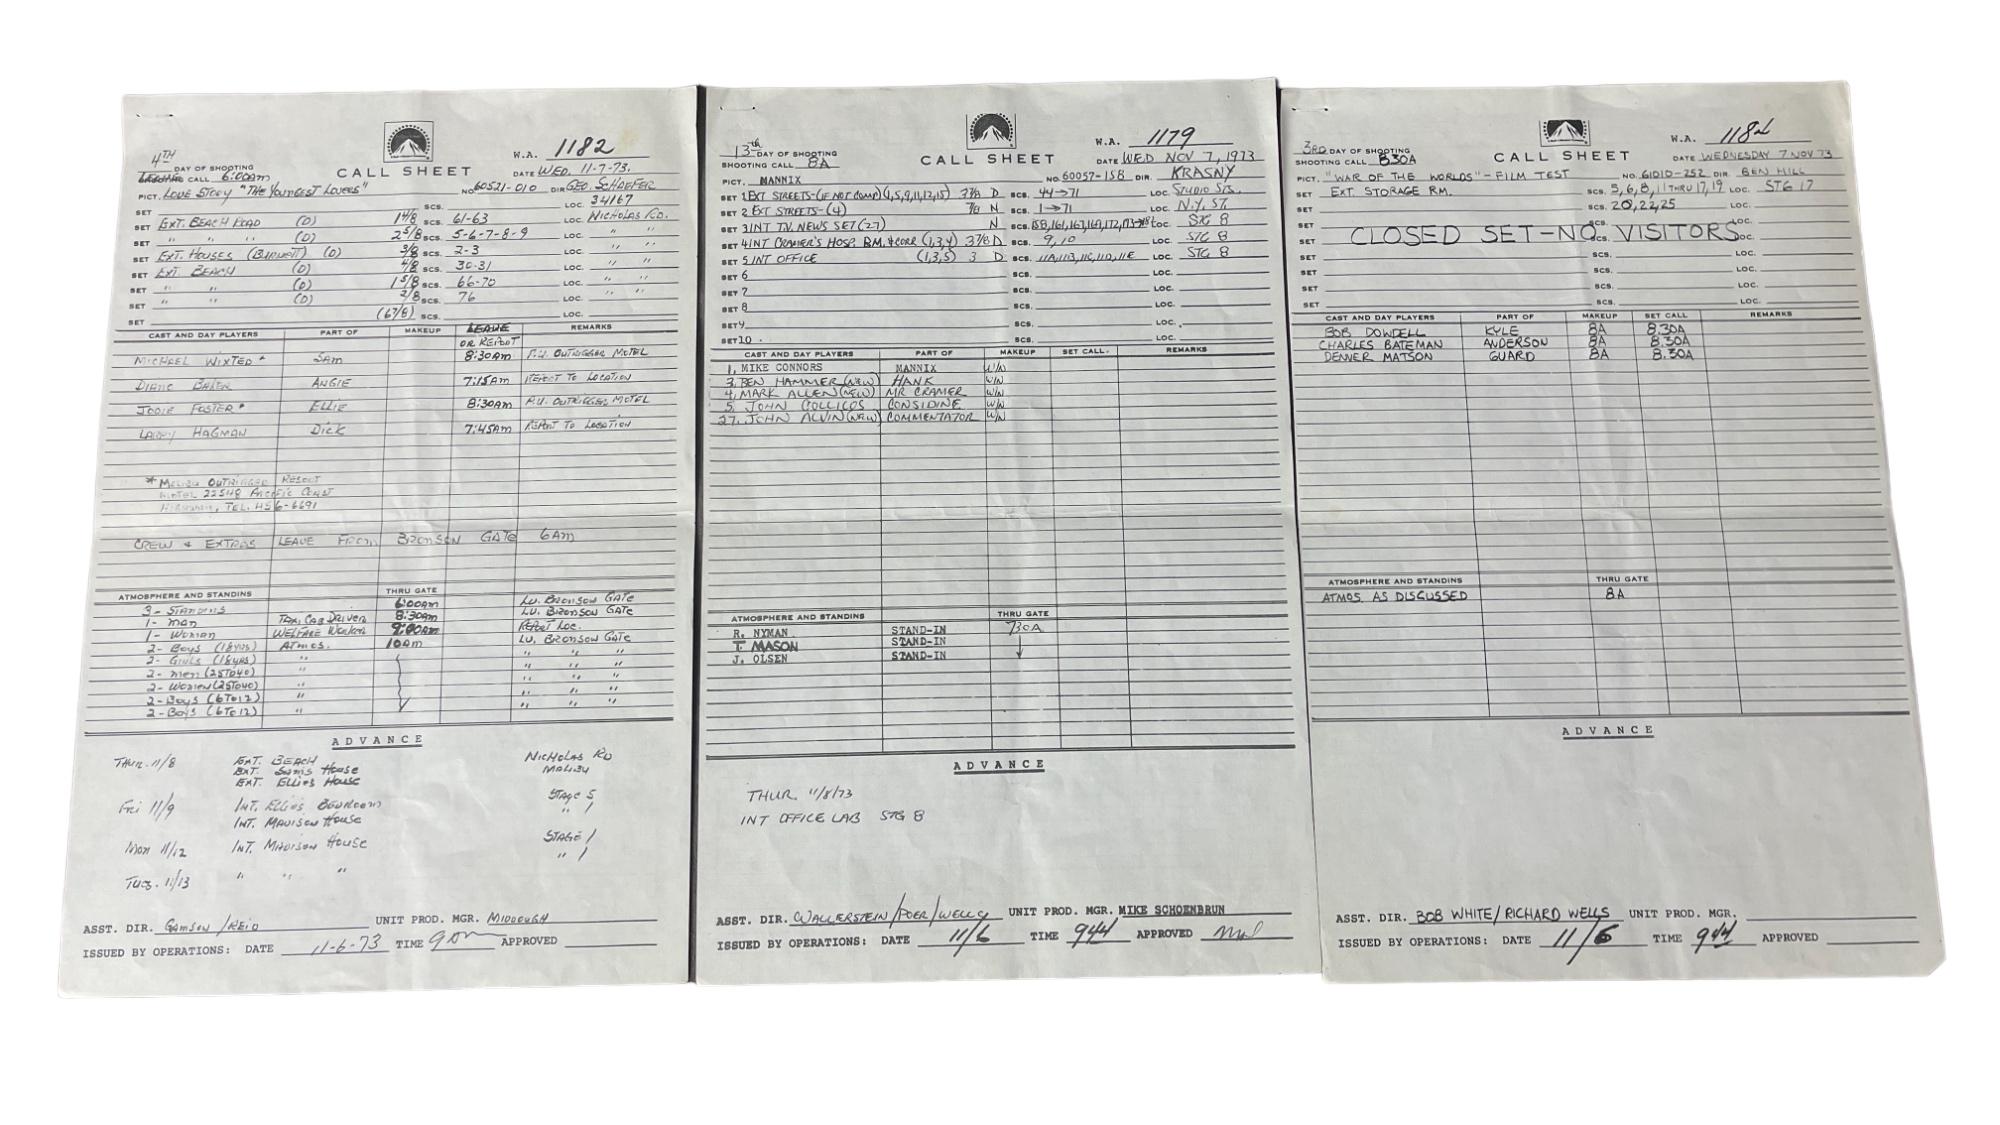 W.A. 1182
4TH DAY OF SHOOTING
CALL SHEET
SHOOTING CALL 6:00am
DATE WED. 11-7-73.
PICT. LOVE STORY "THE YOUNGEST LOVERS"
NO. 60521-010 DIR. GEO. SCHAEFER
SET SCS. LOC. 34167
SET EXT. BEACH ROAD (D) 1 4/8 SCS. 61-63 LOC. NICHOLAS RD.
SET " " " (D) 2 5/8 SCS. 5-6-7-8-9 LOC. " "
SET EXT. HOUSES (BURNETT) (D) 3/8 SCS. 2-3 LOC. " "
SET EXT. BEACH (D) 4/8 SCS. 30-31 LOC. " "
SET " " (D) 1 5/8 SCS. 66-70 LOC. " "
SET " " (D) 2/8 SCS. 76 LOC.
SET (6 7/8) SCS. LOC.
CAST AND DAY PLAYERS PART OF MAKEUP LEAVE OR REPORT REMARKS
MICHAEL WIXTED * SAM 8:30am P.U. OUTRIGGER MOTEL
DIANE BAKER ANGIE 7:15am REPORT TO LOCATION
JODIE FOSTER * ELLIE 8:30am P.U. OUTRIGGER MOTEL
LARRY HAGMAN DICK 7:45am REPORT TO LOCATION
* MALIBU OUTRIGGER RESORT
MOTEL 22548 PACIFIC COAST
HIGHWAY, TEL. 456-6691
CREW & EXTRAS LEAVE FROM BRONSON GATE 6AM
ATMOSPHERE AND STANDINS THRU GATE
3- STANDINS 6:00am LV. BRONSON GATE
1- MAN TAXI CAB DRIVER 8:30am LV. BRONSON GATE
1- WOMAN WELFARE WORKER 9:00am REPORT LOC.
2- BOYS (18YRS) ATMOS. 10am LV. BRONSON GATE
2- GIRLS (18YRS) " " " "
2- MEN (25TO40) " " " "
2- WOMEN (25TO40) " " " "
2- BOYS (6TO12) " " " "
2- BOYS (6TO12) " " " "
ADVANCE
THUR. 11/8 EXT. BEACH NICHOLAS RD
EXT. SAM'S HOUSE MALIBU
EXT. ELLIES HOUSE
FRI 11/9 INT. ELLIES BEDROOM STAGE 5
INT. MADISON HOUSE " 1
MON 11/12 INT. MADISON HOUSE STAGE 1
TUES. 11/13 " " " " 1
ASST. DIR. GAMSON/REID UNIT PROD. MGR. MIDDOUGH
ISSUED BY OPERATIONS: DATE 11-6-73 TIME 9 APPROVED
W.A. 1179
13th DAY OF SHOOTING
CALL SHEET
SHOOTING CALL 8A
DATE WED NOV 7, 1973
PICT. MANNIX NO. 60057-158 DIR. KRASNY
SET 1 EXT STREETS-(IF NOT COMP) (4,5,9,11,12,15) 3 7/8 D SCS. 44→71 LOC. STUDIO STS.
SET 2 EXT STREETS-(4) 7/8 N SCS. 1→71 LOC. N.Y. ST.
SET 3 INT T.V. NEWS SET (27) N SCS. LOC. STG 8
SET 4 INT CRAMER'S HOSP. RM. & CORR (1,3,4) 3 7/8 D SCS. 9, 10 LOC. STG 8
SET 5 INT OFFICE (1,3,5) 3 D SCS. 11A, 11B, 11C, 11D, 11E LOC. STG 8
SET 6 SCS. LOC.
SET 7 SCS. LOC.
SET 8 SCS. LOC.
SET 9 SCS. LOC.
SET 10 SCS. LOC.
CAST AND DAY PLAYERS PART OF MAKEUP SET CALL REMARKS
1. MIKE CONNORS MANNIX W/N
3. BEN HAMMER (NEW) HANK W/N
4. MARK ALLEN (NEW) MR CRAMER W/N
5. JOHN COLLICOS CONSIDINE W/N
27. JOHN ALVIN (NEW) COMMENTATOR W/N
ATMOSPHERE AND STANDINS THRU GATE
R. NYMAN STAND-IN 730A
T. MASON STAND-IN
J. OLSEN STAND-IN
ADVANCE
THUR. 11/8/73
INT OFFICE LAB STG 8
ASST. DIR. WALLERSTEIN/POER/WELLS UNIT PROD. MGR. MIKE SCHOENBRUN
ISSUED BY OPERATIONS: DATE 11/6 TIME 944 APPROVED
W.A. 1184
3RD DAY OF SHOOTING
CALL SHEET
SHOOTING CALL 8:30A
DATE WEDNESDAY 7 NOV 73
PICT. "WAR OF THE WORLDS" - FILM TEST NO. 61010-252 DIR. BEN HILL
SET EXT. STORAGE RM. SCS. 5, 6, 8, 11 THRU 17, 19 LOC. STG 17
SET SCS. 20, 22, 25 LOC.
SET SCS. LOC.
CLOSED SET - NO VISITORS
SET SCS. LOC.
SET SCS. LOC.
SET SCS. LOC.
SET SCS. LOC.
SET SCS. LOC.
CAST AND DAY PLAYERS PART OF MAKEUP SET CALL REMARKS
BOB DOWDELL KYLE 8A 8.30A
CHARLES BATEMAN ANDERSON 8A 8.30A
DENVER MATSON GUARD 8A 8.30A
ATMOSPHERE AND STANDINS THRU GATE
ATMOS. AS DISCUSSED 8A
ADVANCE
ASST. DIR. BOB WHITE/RICHARD WELLS UNIT PROD. MGR.
ISSUED BY OPERATIONS: DATE 11/6 TIME 944 APPROVED